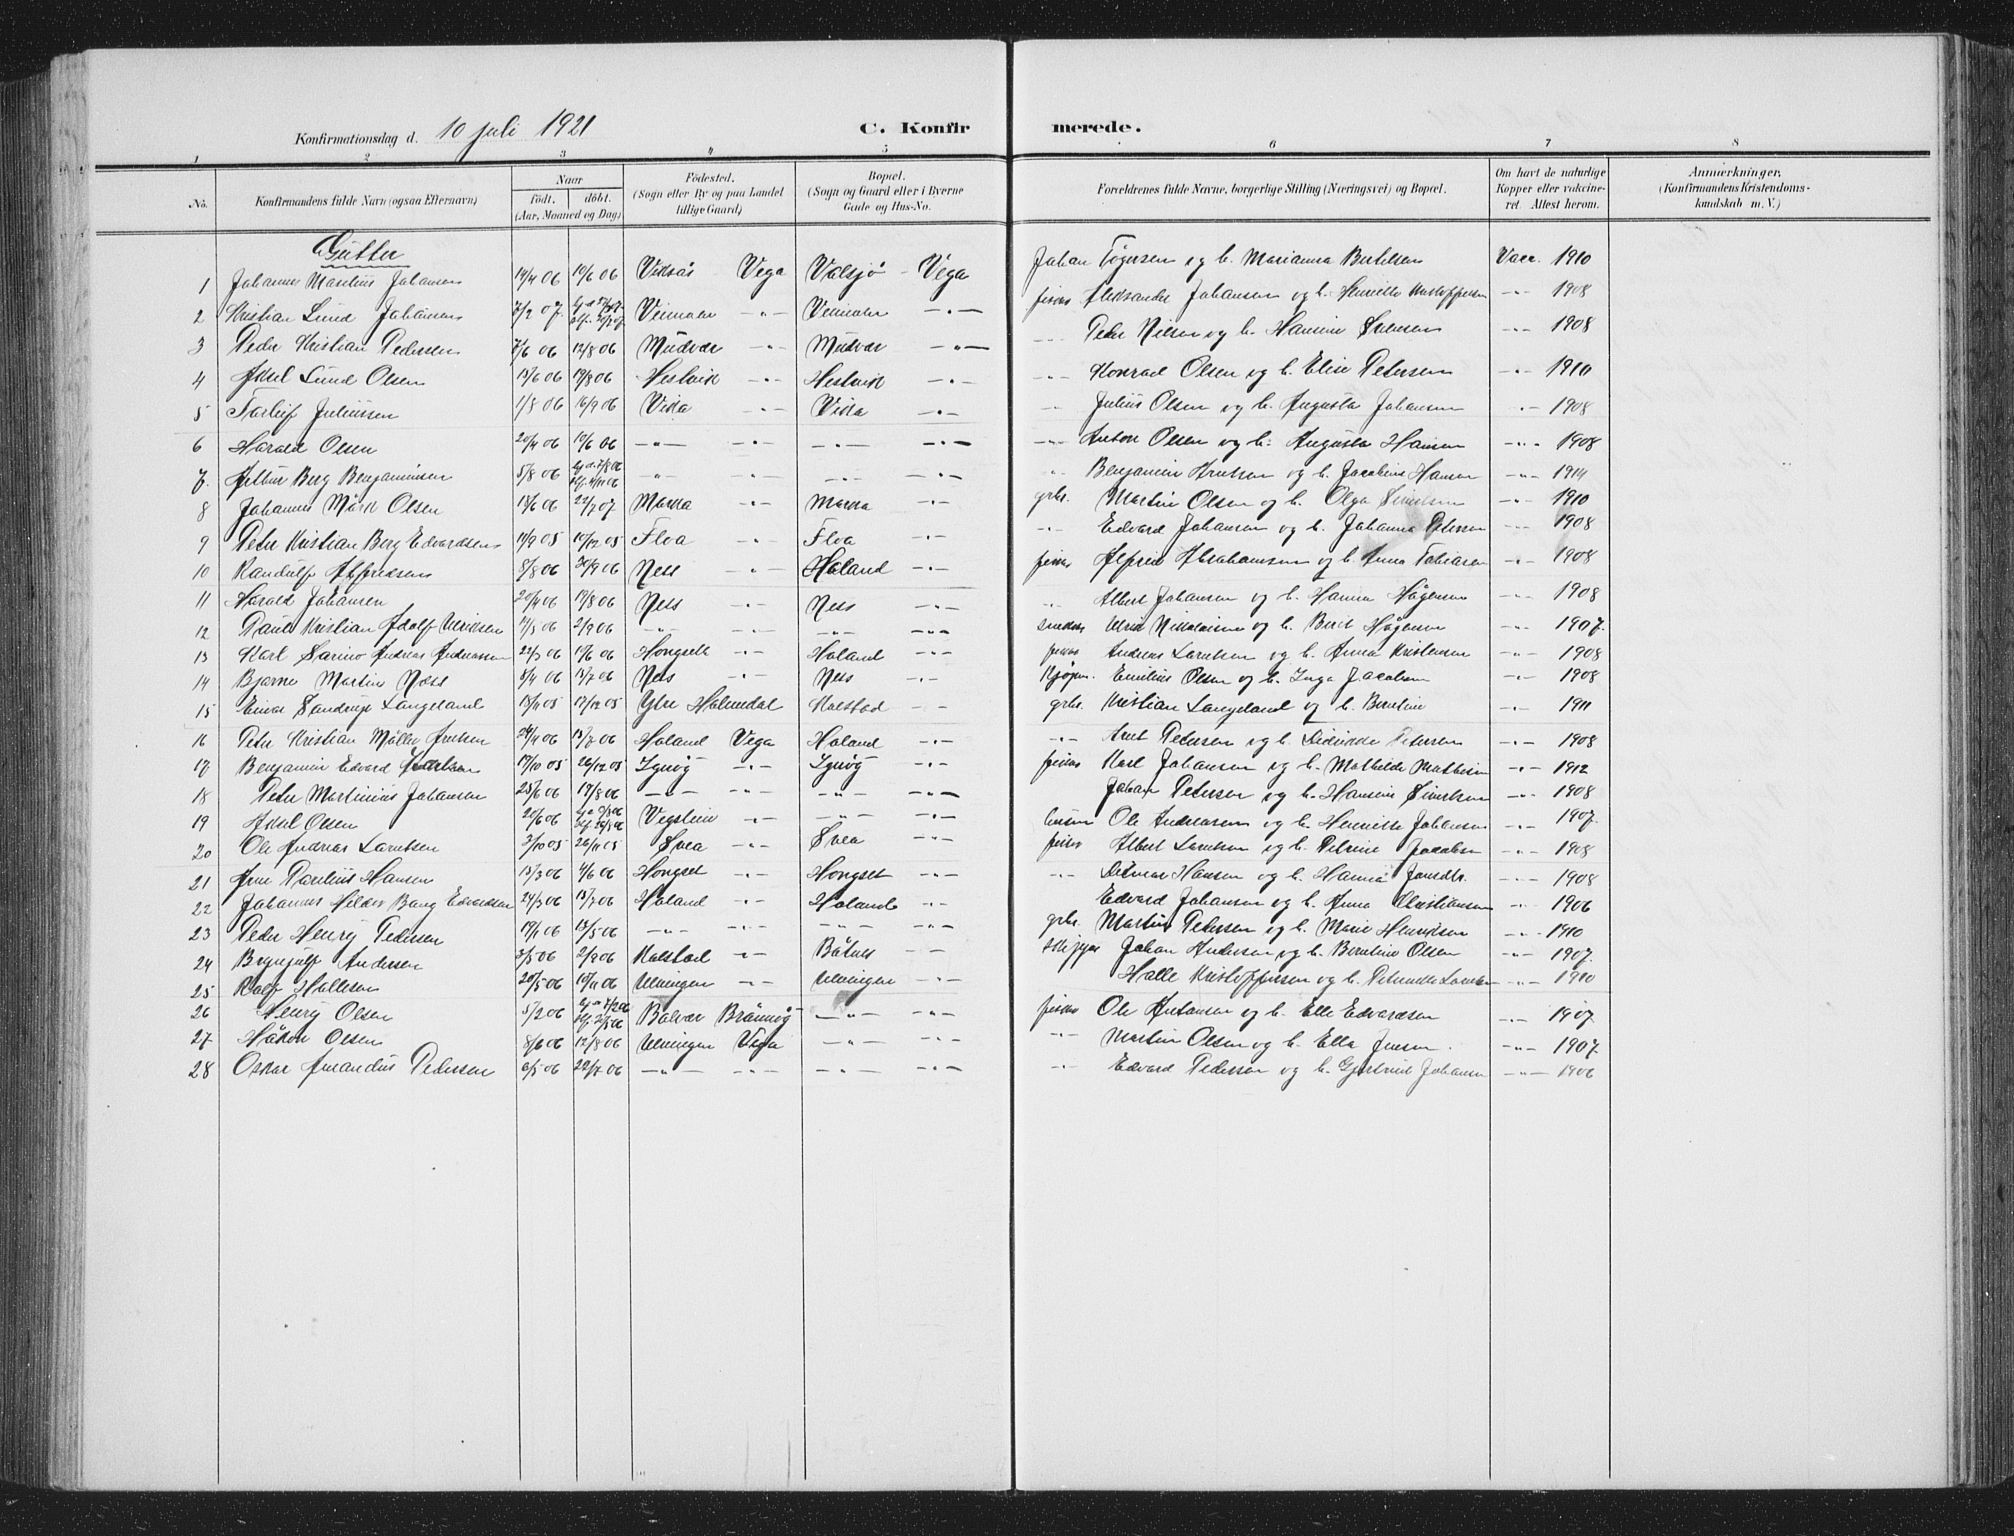 Konfirmationsdag d. 10 juli 1921 C. Konfirmerede.
1 2 3 4 5 6 7 8
No. Konfirmandens fulde Navn (ogsaa Efternavn) Naar födt. döbt. (Aar, Maaned og Dag) Födested. (Sogn eller By og paa Landet tillige Gaard) Bopæl. (Sogn og Gaard eller i Byerne Gade og Hus-No. Forældrenes fulde Navne, borgerlige Stilling (Næringsvei) og Bopæl. Om havt de naturlige Kopper eller vaccineret. Attest herom. Anmærkninger. (Konfirmandens Kristendomskundskab m. V.)
Gutter
1 Johannes Johansen 14/4 06 10/6 06 Viksås Vega Valsjø Vega Johan og h. Marianna Bertelsen Vacc. 1910
2 Kristian Lund Johansen 7/2 07 Veimoen -"- Veimoen -"- fisker Aleksander Johansen og h. Henrikke Kristoffersen -"- 1908
3 Peder Kristian Pedersen 7/6 06 12/8 06 Mudvær -"- Mudvær -"- -"- Peder Nilsen og h. Hansine -"- 1908
4 Aksel Lund Olsen 15/6 06 19/8 06 Hestvik -"- Hestvik -"- -"- Konrad Olsen og h. Elise Petersen -"- 1910
5 Torleif Juliussen 1/8 06 16/9 06 Vikla -"- Vikla -"- -"- Julius Olsen og h. Augusta Johansen -"- 1908
6 Harald Olsen 20/4 06 10/6 06 -"- -"- -"- -"- -"- Anton Olsen og h. Augusta Hansen -"- 1908
7. Berg Benjaminsen 5/8 06 -"- -"- -"- -"- -"- Benjamin Arntsen og h. Jacobine Hansen -"- 1914
8 Johannes Mørk Olsen 18/6 06 22/7 07 Marka -"- Marka -"- grbr. Martin Olsen og h. Olga -"- 1910
9 Peter Kristian Berg Edvardsen 14/9 05 10/12 05 Floa -"- Floa -"- -"- Edvard Johansen og h. Johanna Petersen -"- 1908
10 Randulf Alfredsen 8/8 06 30/9 06 Ness -"- Holand -"- fisker Alfred Abrahamsen og h. Anna Tobiasen -"- 1908
11 Harald Johansen 20/4 06 19/8 06 Ness -"- Ness -"- -"- Albert Johansen og h. Hanna Hågensen -"- 1908
12 Paul Kristian Adolf Ulriksen 14/5 06 2/9 06 -"- -"- -"- -"- Ulrik Nikolaisen og h. Berit Hågensen -"- 1907.
13 Karl Andreas Andreassen 22/3 06 10/6 06 -"- Holand -"- fisker Andreas Larntsen og h. Anna Kristensen -"- 1908
14 Bjarne Martin Næss 8/4 06 15/7 06 Ness -"- Ness -"- Kjøpm. Emilius Olsen og h. Inga Jacobsen -"- 1908
15 Einar Sandrup Langeland 13/11 05 17/12 05 Ytre Holmedal Kalstad -"- grbr. Kristian Langeland og h. Berntine -"- 1911
16 Peter Kristian Møller Arntsen 24/4 06 15/7 06 Holand Vega Holand -"- -"- Arnt Petersen og h. Didrikke Petersen -"- 1908
17 Benjamin Edvard 17/10 05 26/12 05 -"- -"- fisker Karl Johansen og h. Mathilde Mathisen -"- 1912
18 Peter Martinius Johansen 25/6 06 19/8 06 -"- -"- -"- -"- Johan Petersen og h. Hansine -"- 1908
19 Aksel Olsen 20/6 06 Vegstein -"- -"- -"- Ole Andreasen og h. Henrikke Johansen -"- 1907.
20 Ole Andreas Larntsen 3/10 05 26/11 05 Svea -"- Svea -"- fisker Albert Larntsen og h. Petrine Jacobsen -"- 1908
21 Arne Parelius Hansen 13/3 06 4/6 06 Hongset -"- Hongset -"- -"- Ditmar Hansen og h. Hanna Jensdtr. -"- 1908
22 Johannes Hilder Bang Edvardsen 24/3 06 15/7 06 Holand -"- Holand -"- Edvard Johansen og h. Anna Christiansen -"- 1906
23 Peder Henry Pedersen 14/1 06 13/5 06 -"- -"- -"- -"- grbr. Martin Petersen og h. Marie Henriksen -"- 1910
24 Brynjulf Andersen 3/5 06 2/9 06 Kalstad -"- -"- skipper Johan Andersen og h. Berntine Olsen -"- 1907.
25 Rolf Hallesen 20/5 06 18/11 06 Ulvingen -"- Ulvingen -"- Halle Kristoffersen og h. Petrikke Larntsen -"- 1910
26 Henry Olsen 5/2 06 Brønnøy -"- -"- fisker Ole Antonsen og h. Elle Edvardsen -"- 1907.
27 Håkon Olsen 8/6 06 12/8 06 Ulvingen Vega -"- -"- -"- Martin Olsen og h. Ella Jensen. -"- 1907.
28 Oskar Amandus Pedersen 6/5 06 22/7 06 -"- -"- -"- -"- -"- Edvard Pedersen og h. Gjertrud Johansen -"- 1906